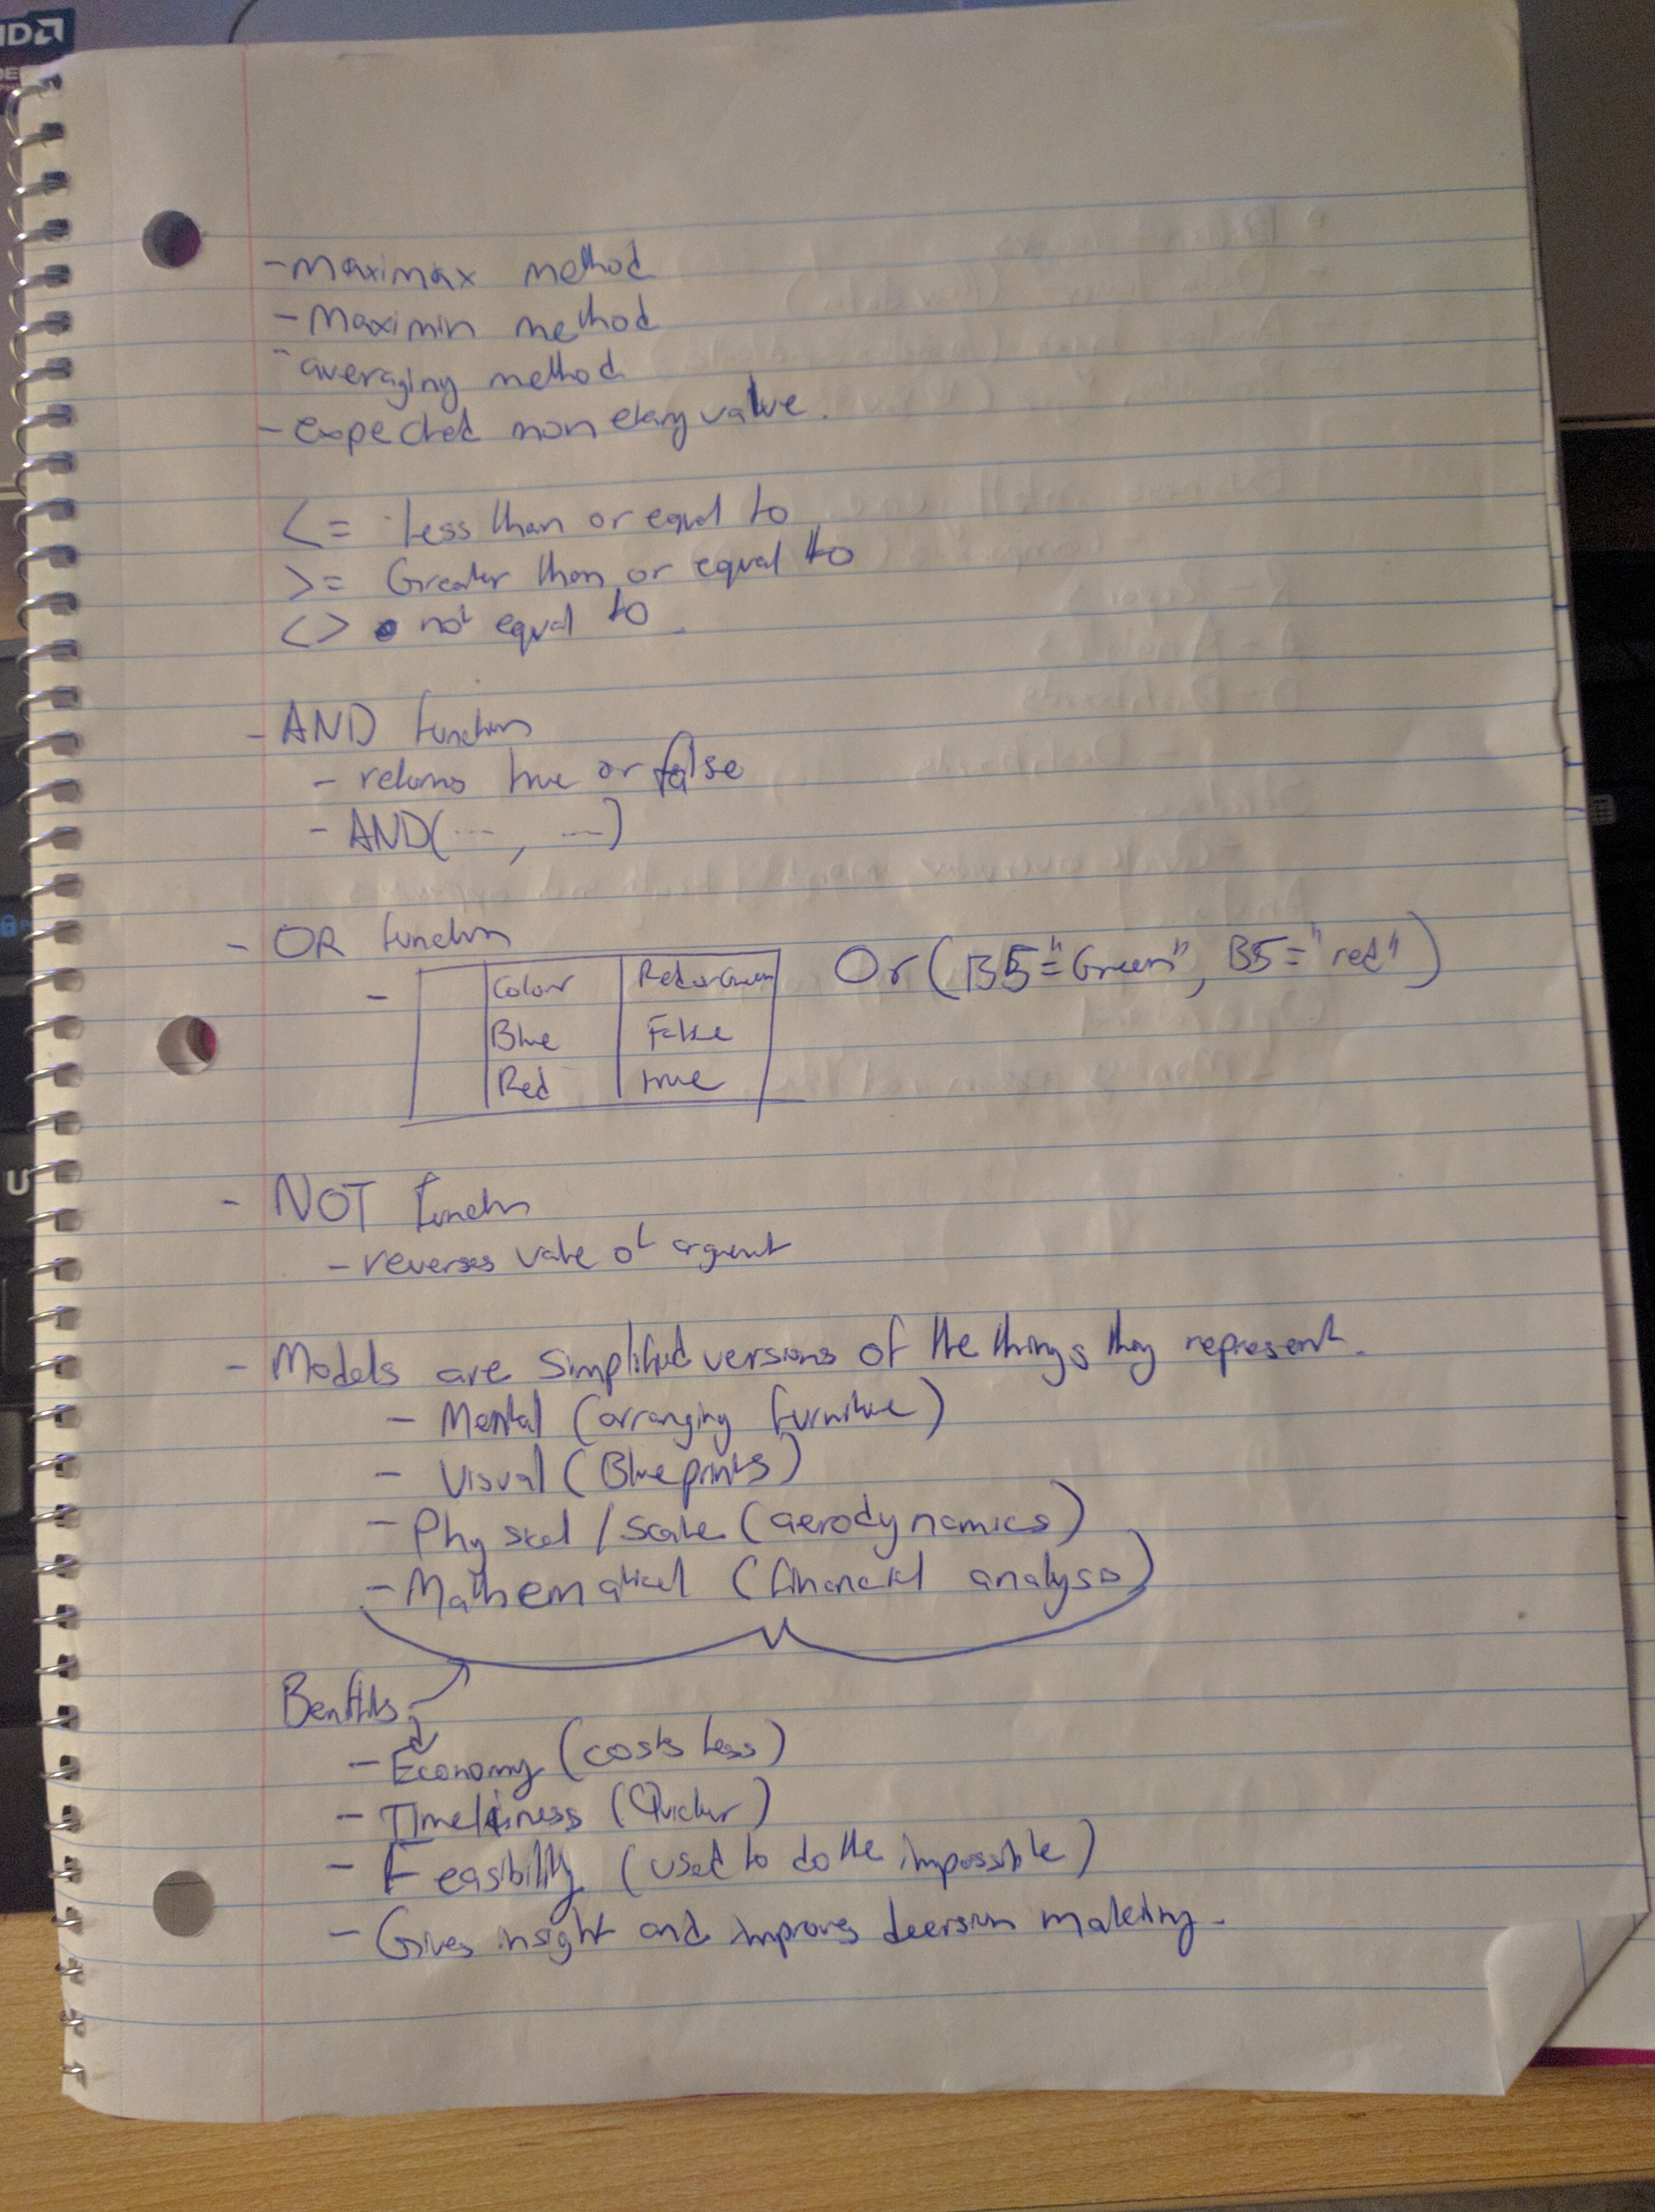 - Maximax method
- Maximin method
- averaging method
- expected monetary value.
<= less than or equal to
>= Greater than or equal to
<> not equal to.
- AND function
- returns true or false
- AND(..., ...)
- OR function
- Color Red or Green Or(B5="Green", B5="red")
Blue False
Red true
- NOT function
- reverses value of argument
- Models are simplified versions of the things they represent.
- Mental (arranging furniture)
- Visual (Blueprints)
- Physical/scale (aerodynamics)
- Mathematical (financial analysis)
Benefits
- Economy (costs less)
- Timeliness (Quicker)
- Feasibility (used to do the impossible)
- Gives insight and improves decision making.
U